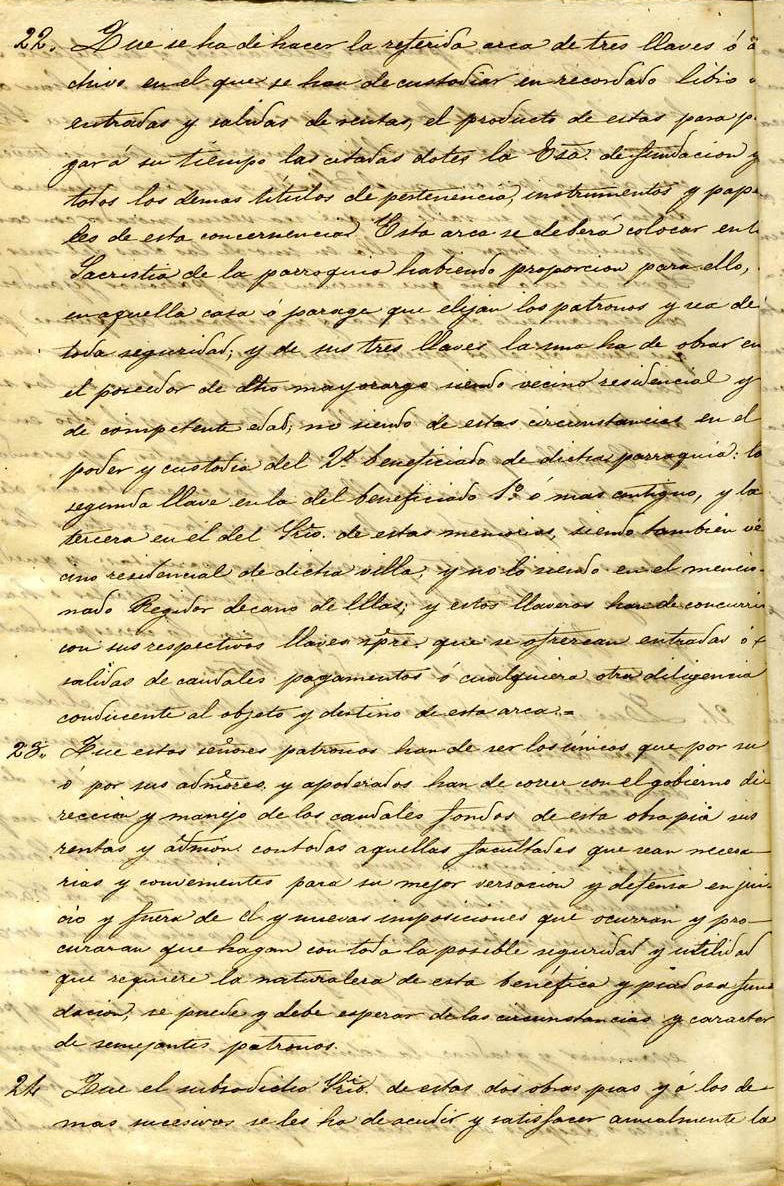 22. Que se ha de hacer la referida arca de tres llaves ó a
chivo en el que se han de custodiar en recordado libro
entradas y salidas de rentas, el producto de estas para p
gar á su tiempo las citadas dotes la Esa. de fundacion y
todos los demas títulos de pertenencia, instrumentos y pape
les de esta concernencia Esta arca se deberá colocar en l
Sacristia de la parroquia habiendo proporcion para ello,
en aquella casa ó parage que elijan los patronos y sea de
toda seguridad; y de sus tres llaves la una ha de obrar en
el poseedor de dho mayorazgo siendo vecino residencial y
de competente edad; no siendo de estas circunstancias en el
poder y custodia del 2º beneficiado de dicha parroquia: la
segunda llave en la del beneficiado 1º ó mas antiguo, y la
tercera en el del Srio. de estas memorias, siendo tambien ve
cino residencial de dicha villa, y no lo siendo en el mencio-
nado Regidor decano de Illas; y estos llaveros han de concurrir
con sus respectivas llaves spre. que se ofrezcan entradas ó
salidas de caudales pagamentos ó cualquiera otra diligencia
conducente al objeto y destino de esta arca.=
23. Que estos señores patronos han de ser los únicos que por su
o por sus admores. y apoderados han de correr con el gobierno di
reccion y manejo de los caudales fondos de esta obra pia sus
rentas y admon. con todas aquellas facultades que sean necesa
rias y convenientes para su mejor versacion y defensa en jui-
cio y fuera de el y nuevas imposiciones que ocurran y pro-
curaran que hagan con toda la posible seguridad y utilidad
que requiere la naturaleza de esta benéfica y piadosa fun
dacion, se puede y debe esperar de las circunstancias y caracter
de semejantes patronos.
24 Que el susodicho Srio. de estas dos obras pias y á los de
mas sucesivos se les ha de acudir y satisfacer anualmente la